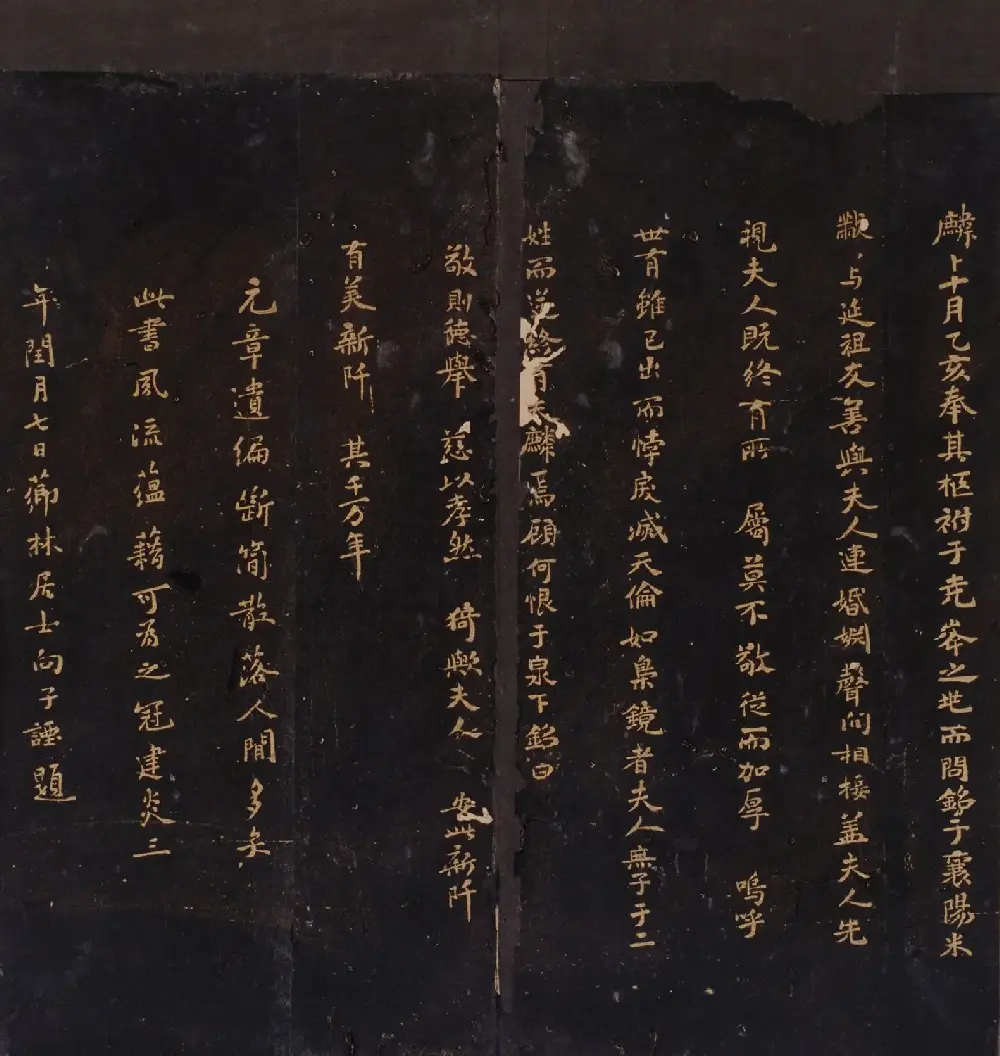 麟卜十月乙亥奉其柩祔于堯峯之兆而問銘于襄陽米
黻与延祖友善與夫人連婚姻聲問相接盖夫人先
視夫人既終有所 屬莫不敬從而加厚 嗚呼
世有雖己出而悖戾滅天倫如梟鏡者夫人無子于二
姓而送終有夫麟焉顧何恨于泉下銘曰
敬則德舉 慈以孝然 猗歟夫人 安此新阡
有美新阡 其千万年
元章遺編斷簡散落人間多矣
此書風流藴藉可為之冠建炎三
年閏月七日薌林居士向子諲題